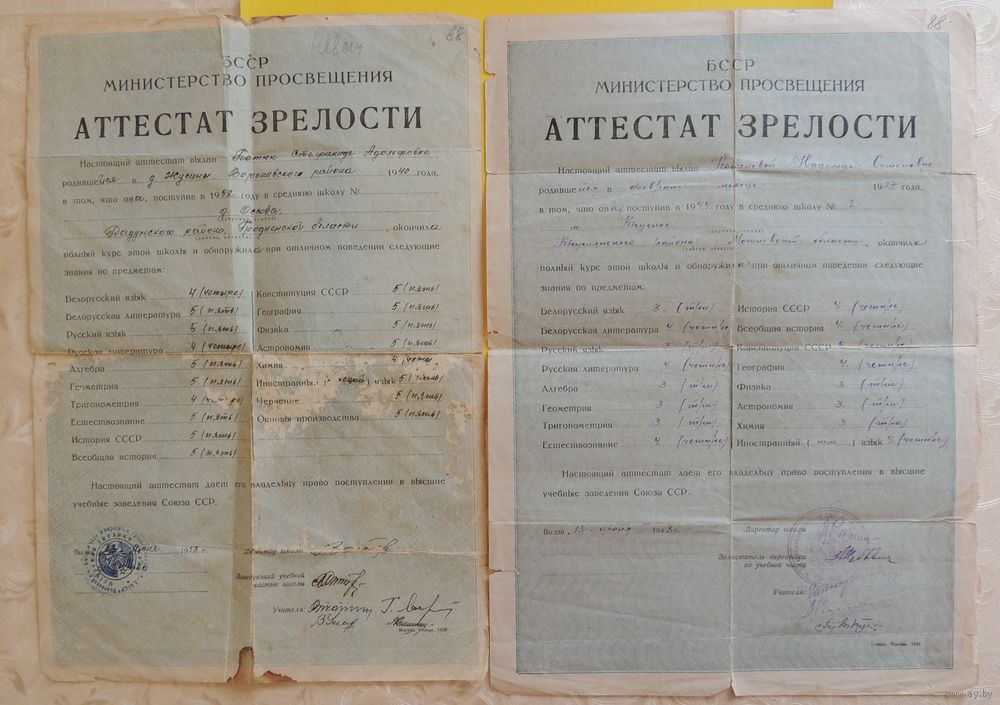 88
БССР
МИНИСТЕРСТВО ПРОСВЕЩЕНИЯ
АТТЕСТАТ ЗРЕЛОСТИ
Настоящий аттестат выдан Адольфовне,
родившейся в д. Жусины, Вороновского района 1940 года,
в том, что она, поступив в 1952 году в среднюю школу №
д. Оссова
Радунского района, Гродненской области, окончила
полный курс этой школы и обнаружила при отличном поведении следующие
знания по предметам:
Белорусский язык 4 (четыре)
Белорусская литература 5 (пять)
Русский язык 5 (пять)
Русская литература 4 (четыре)
Алгебра 5 (пять)
Геометрия 5 (пять)
Тригонометрия 4
Естествознание 5 (пять)
История СССР 5 (пять)
Всеобщая история 5 (пять)
Конституция СССР 5 (пять)
География 5 (пять)
Физика 5 (пять)
Астрономия 5 (пять)
Химия 4
Иностранный язык 5 (пять)
Черчение 5 (пять)
Основы производства 5 (пять)
Настоящий аттестат дает его владельцу право поступления в высшие
учебные заведения Союза ССР.
июня 1958 г.
Директор школы
Заведующий учебной
частью школы
Учителя:
88
БССР
МИНИСТЕРСТВО ПРОСВЕЩЕНИЯ
АТТЕСТАТ ЗРЕЛОСТИ
Настоящий аттестат выдан Надежде Семеновне
родившейся в феврале месяце 1927 года,
в том, что она, поступив в 1944 году в среднюю школу № 1
м. Кличев
района Могилевской области, окончила
полный курс этой школы и обнаружила при отличном поведении следующие
знания по предметам:
Белорусский язык 3 (три)
Белорусская литература 4 (четыре)
Русский язык 3
Русская литература 4 (четыре)
Алгебра 3 (три)
Геометрия 3 (три)
Тригонометрия 3 (три)
Естествознание 4 (четыре)
История СССР 4 (четыре)
Всеобщая история 4 (четыре)
Конституция СССР 4 (четыре)
География 4 (четыре)
Физика 3 (три)
Астрономия 3 (три)
Химия 3 (три)
Иностранный (нем.) язык 4 (четыре)
Настоящий аттестат дает его владельцу право поступления в высшие
учебные заведения Союза ССР.
Выдан 13 июня 1948 г.
Директор школы
Заместитель директора
по учебной части
Учителя:
www.ay.by